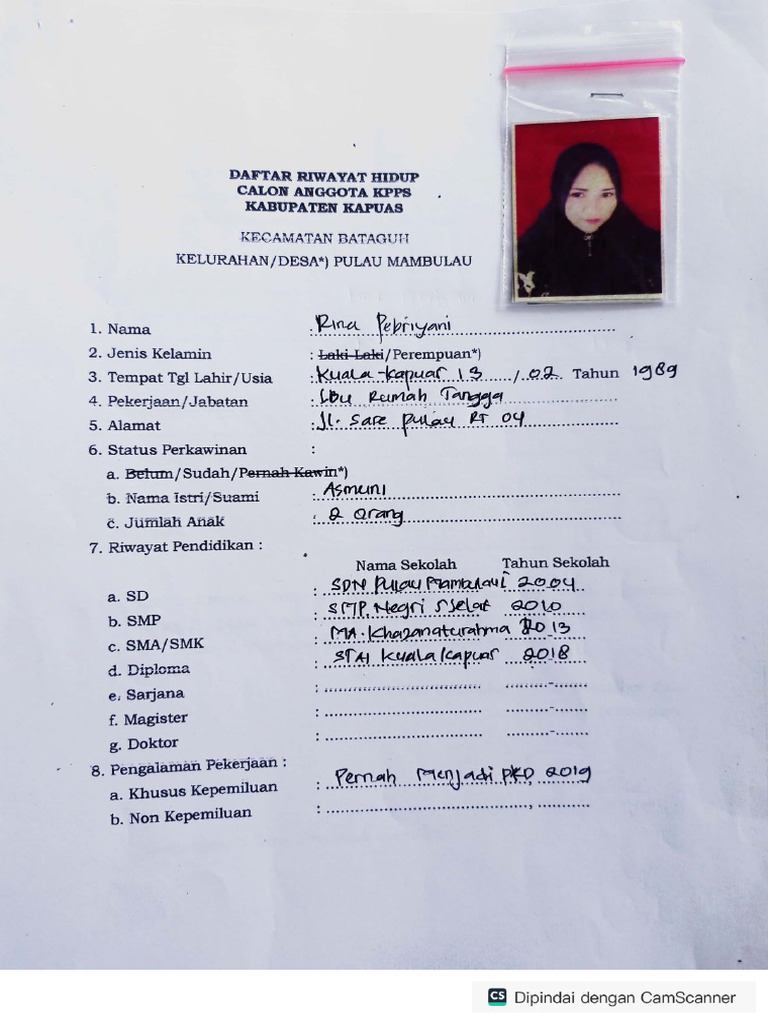 DAFTAR RIWAYAT HIDUP
CALON ANGGOTA KPPS
KABUPATEN KAPUAS
KECAMATAN BATAGUH
KELURAHAN/DESA*) PULAU MAMBULAU
1. Nama : Rina Pebriyani
2. Jenis Kelamin : Laki-Laki/Perempuan*)
3. Tempat Tgl Lahir/Usia : Kuala-Kapuar 13 / 02 Tahun 1989
4. Pekerjaan/Jabatan : Ibu Rumah Tangga
5. Alamat : Jl. Sare pulau RT 04
6. Status Perkawinan :
a. Belum/Sudah/Pernah Kawin*)
b. Nama Istri/Suami : Asmuni
c. Jumlah Anak : 2 Orang
7. Riwayat Pendidikan :
Nama Sekolah Tahun Sekolah
a. SD : SDN Pulau Mambulau 2004
b. SMP : SMP. Negri Selat 2010
c. SMA/SMK : MA. Khazanaturahma 2013
d. Diploma : STAI Kuala Kapuar 2018
e. Sarjana : -
f. Magister : -
g. Doktor : -
8. Pengalaman Pekerjaan :
a. Khusus Kepemiluan : Pernah Menjadi PKD, 2019
b. Non Kepemiluan : ,
CS Dipindai dengan CamScanner